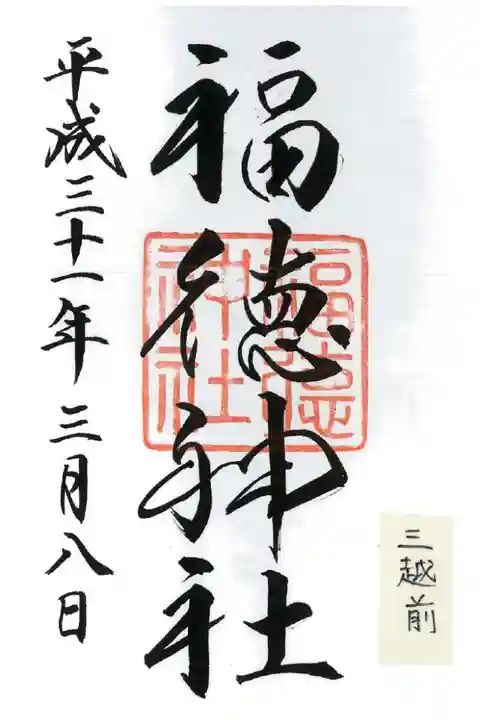 三越前
福徳神社
福徳神社
平成三十一年三月八日